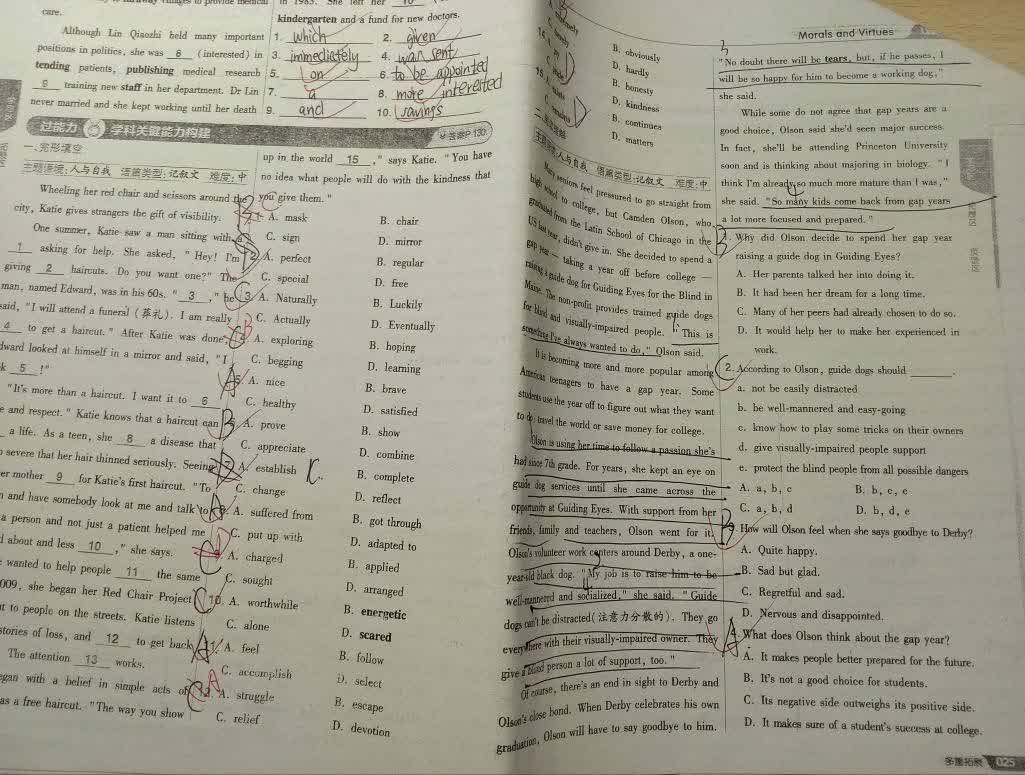 care.
Although Lin Qiaozhi held many important
positions in politics, she was 6 (interested) in
tending patients, publishing medical research
9 training new staff in her department. Dr Lin
never married and she kept working until her death
in 1983. She left her 10
kindergarten and a fund for new doctors.
1. which 2. given
3. immediately 4. was sent
5. on 6. to be appointed
7. a 8. more interested
9. and 10. savings
过能力 学科关键能力构建 答案P130
一、完形填空
主题语境:人与自我 语篇类型:记叙文 难度:中
Wheeling her red chair and scissors around the
city, Katie gives strangers the gift of visibility.
One summer, Katie saw a man sitting with a
1 asking for help. She asked, "Hey! I'm
giving 2 haircuts. Do you want one?" The
man, named Edward, was in his 60s. " 3 ," he
said, "I will attend a funeral (葬礼). I am really
4 to get a haircut." After Katie was done,
Edward looked at himself in a mirror and said, "I
5 !"
"It's more than a haircut. I want it to 6
and respect." Katie knows that a haircut can
a life. As a teen, she 8 a disease that
so severe that her hair thinned seriously. Seeing
her mother 9 for Katie's first haircut. "To
and have somebody look at me and talk to
a person and not just a patient helped me
about and less 10 ," she says.
wanted to help people 11 the same
2009, she began her Red Chair Project
to people on the streets. Katie listens
stories of loss, and 12 to get back
The attention 13 works.
began with a belief in simple acts of
as a free haircut. "The way you show
up in the world 15 ," says Katie. "You have
no idea what people will do with the kindness that
you give them."
1. A. mask B. chair
C. sign D. mirror
2. A. perfect B. regular
C. special D. free
3. A. Naturally B. Luckily
C. Actually D. Eventually
B
4. A. exploring B. hoping
C. begging D. learning
5. A. nice B. brave
C. healthy D. satisfied
6. A. prove B. show
C. appreciate D. combine
7. A. establish B. complete
C.
C. change D. reflect
8. A. suffered from B. got through
C. put up with D. adapted to
9. A. charged B. applied
C. sought D. arranged
10. A. worthwhile B. energetic
C. alone D. scared
11. A. feel B. follow
C. accomplish D. select
A
12. A. struggle B. escape
C. relief D. devotion
B. obviously
D. hardly
B. honesty
D. kindness
B. continues
D. matters
主题语境:人与自我 语篇类型:记叙文 难度:中
Many seniors feel pressured to go straight from
high school to college, but Camden Olson, who
graduated from the Latin School of Chicago in the
US last year, didn't give in. She decided to spend a
gap year — taking a year off before college —
raising a guide dog for Guiding Eyes for the Blind in
Maine. The non-profit provides trained guide dogs
for blind and visually-impaired people. "This is
something I've always wanted to do," Olson said.
It is becoming more and more popular among
American teenagers to have a gap year. Some
students use the year off to figure out what they want
to do, travel the world or save money for college.
Olson is using her time to follow a passion she's
had since 7th grade. For years, she kept an eye on
guide dog services until she came across the
opportunity at Guiding Eyes. With support from her
friends, family and teachers, Olson went for it.
Olson's volunteer work centers around Derby, a one-
year-old black dog. "My job is to raise him to be
well-mannered and socialized," she said. "Guide
dogs can't be distracted(注意力分散的). They go
everywhere with their visually-impaired owner. They
give a blind person a lot of support, too."
Of course, there's an end in sight to Derby and
Olson's close bond. When Derby celebrates his own
graduation, Olson will have to say goodbye to him.
Morals and Virtues
"No doubt there will be tears, but, if he passes, I
will be so happy for him to become a working dog,"
she said.
While some do not agree that gap years are a
good choice, Olson said she'd seen major success.
In fact, she'll be attending Princeton University
soon and is thinking about majoring in biology. "I
think I'm already so much more mature than I was,"
she said. "So many kids come back from gap years
a lot more focused and prepared."
1. Why did Olson decide to spend her gap year
raising a guide dog in Guiding Eyes?
A. Her parents talked her into doing it.
B. It had been her dream for a long time.
C. Many of her peers had already chosen to do so.
D. It would help her to make her experienced in
work.
2. According to Olson, guide dogs should ______.
a. not be easily distracted
b. be well-mannered and easy-going
c. know how to play some tricks on their owners
d. give visually-impaired people support
e. protect the blind people from all possible dangers
A. a, b, c B. b, c, e
C. a, b, d D. b, d, e
B
3. How will Olson feel when she says goodbye to Derby?
A. Quite happy.
B. Sad but glad.
C. Regretful and sad.
D. Nervous and disappointed.
A
4. What does Olson think about the gap year?
A. It makes people better prepared for the future.
B. It's not a good choice for students.
C. Its negative side outweighs its positive side.
D. It makes sure of a student's success at college.
多重拓展 025